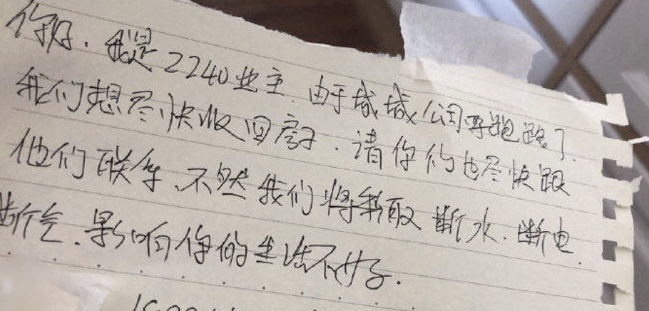 你好．我是2240业主．由于城城公司跑路了．
我们想尽快收回房子．请你们也尽快跟
他们联系、不然我们将采取断水．断电．
断气．影响你的生活不好．